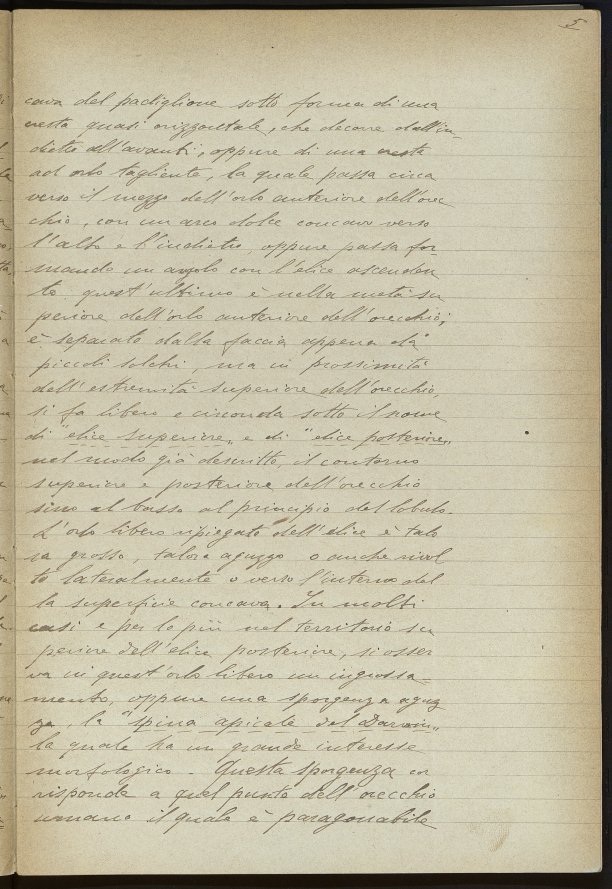 5
cava del padiglione sotto forma di una
cresta quasi orizzontale, che decorre dall'in-
dietro all'avanti, oppure di una cresta
ad orlo tagliente, la quale passa circa
verso il mezzo dell'orlo anteriore dell'orec
chio, con un arco dolce concavo verso
l'alto e l'indietro, oppure passa for-
mando un angolo con l'elice ascenden
te. quest'ultimo è nella metà su
periore dell'orlo anteriore dell'orecchio;
è separato dalla faccia appena da
piccoli solchi, ma in prossimità
dell'estremità superiore dell'orecchio,
si fa libero e circonda sotto il nome
di "elice superiore„ e di "elice posteriore„
nel modo già descritto, il contorno
superiore e posteriore dell'orecchio
sino al basso al principio del lobulo.
L'orlo libero ripiegato dell'elice è talo
ra grosso, talora aguzzo o anche rivol
to lateralmente o verso l'interno del
la superficie concava. In molti
casi e per lo più nel territorio su
periore dell'elice posteriore, si osser
va in quest'orlo libero un ingrossa-
mento, oppure una sporgenza aguz
za, la "spina apicale del Darwin„
la quale ha un grande interesse
morfologico. Questa sporgenza cor
risponde a quel punto dell'orecchio
umano il quale è paragonabile